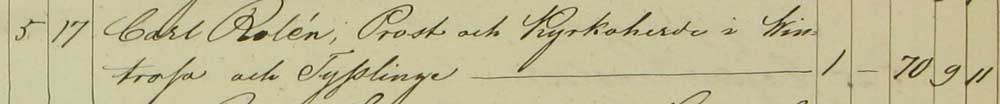 5 17 Carl Rolén, Prost och Kyrkoherde i Win-
trosa och Tysslinge — 1 — 70 9 11